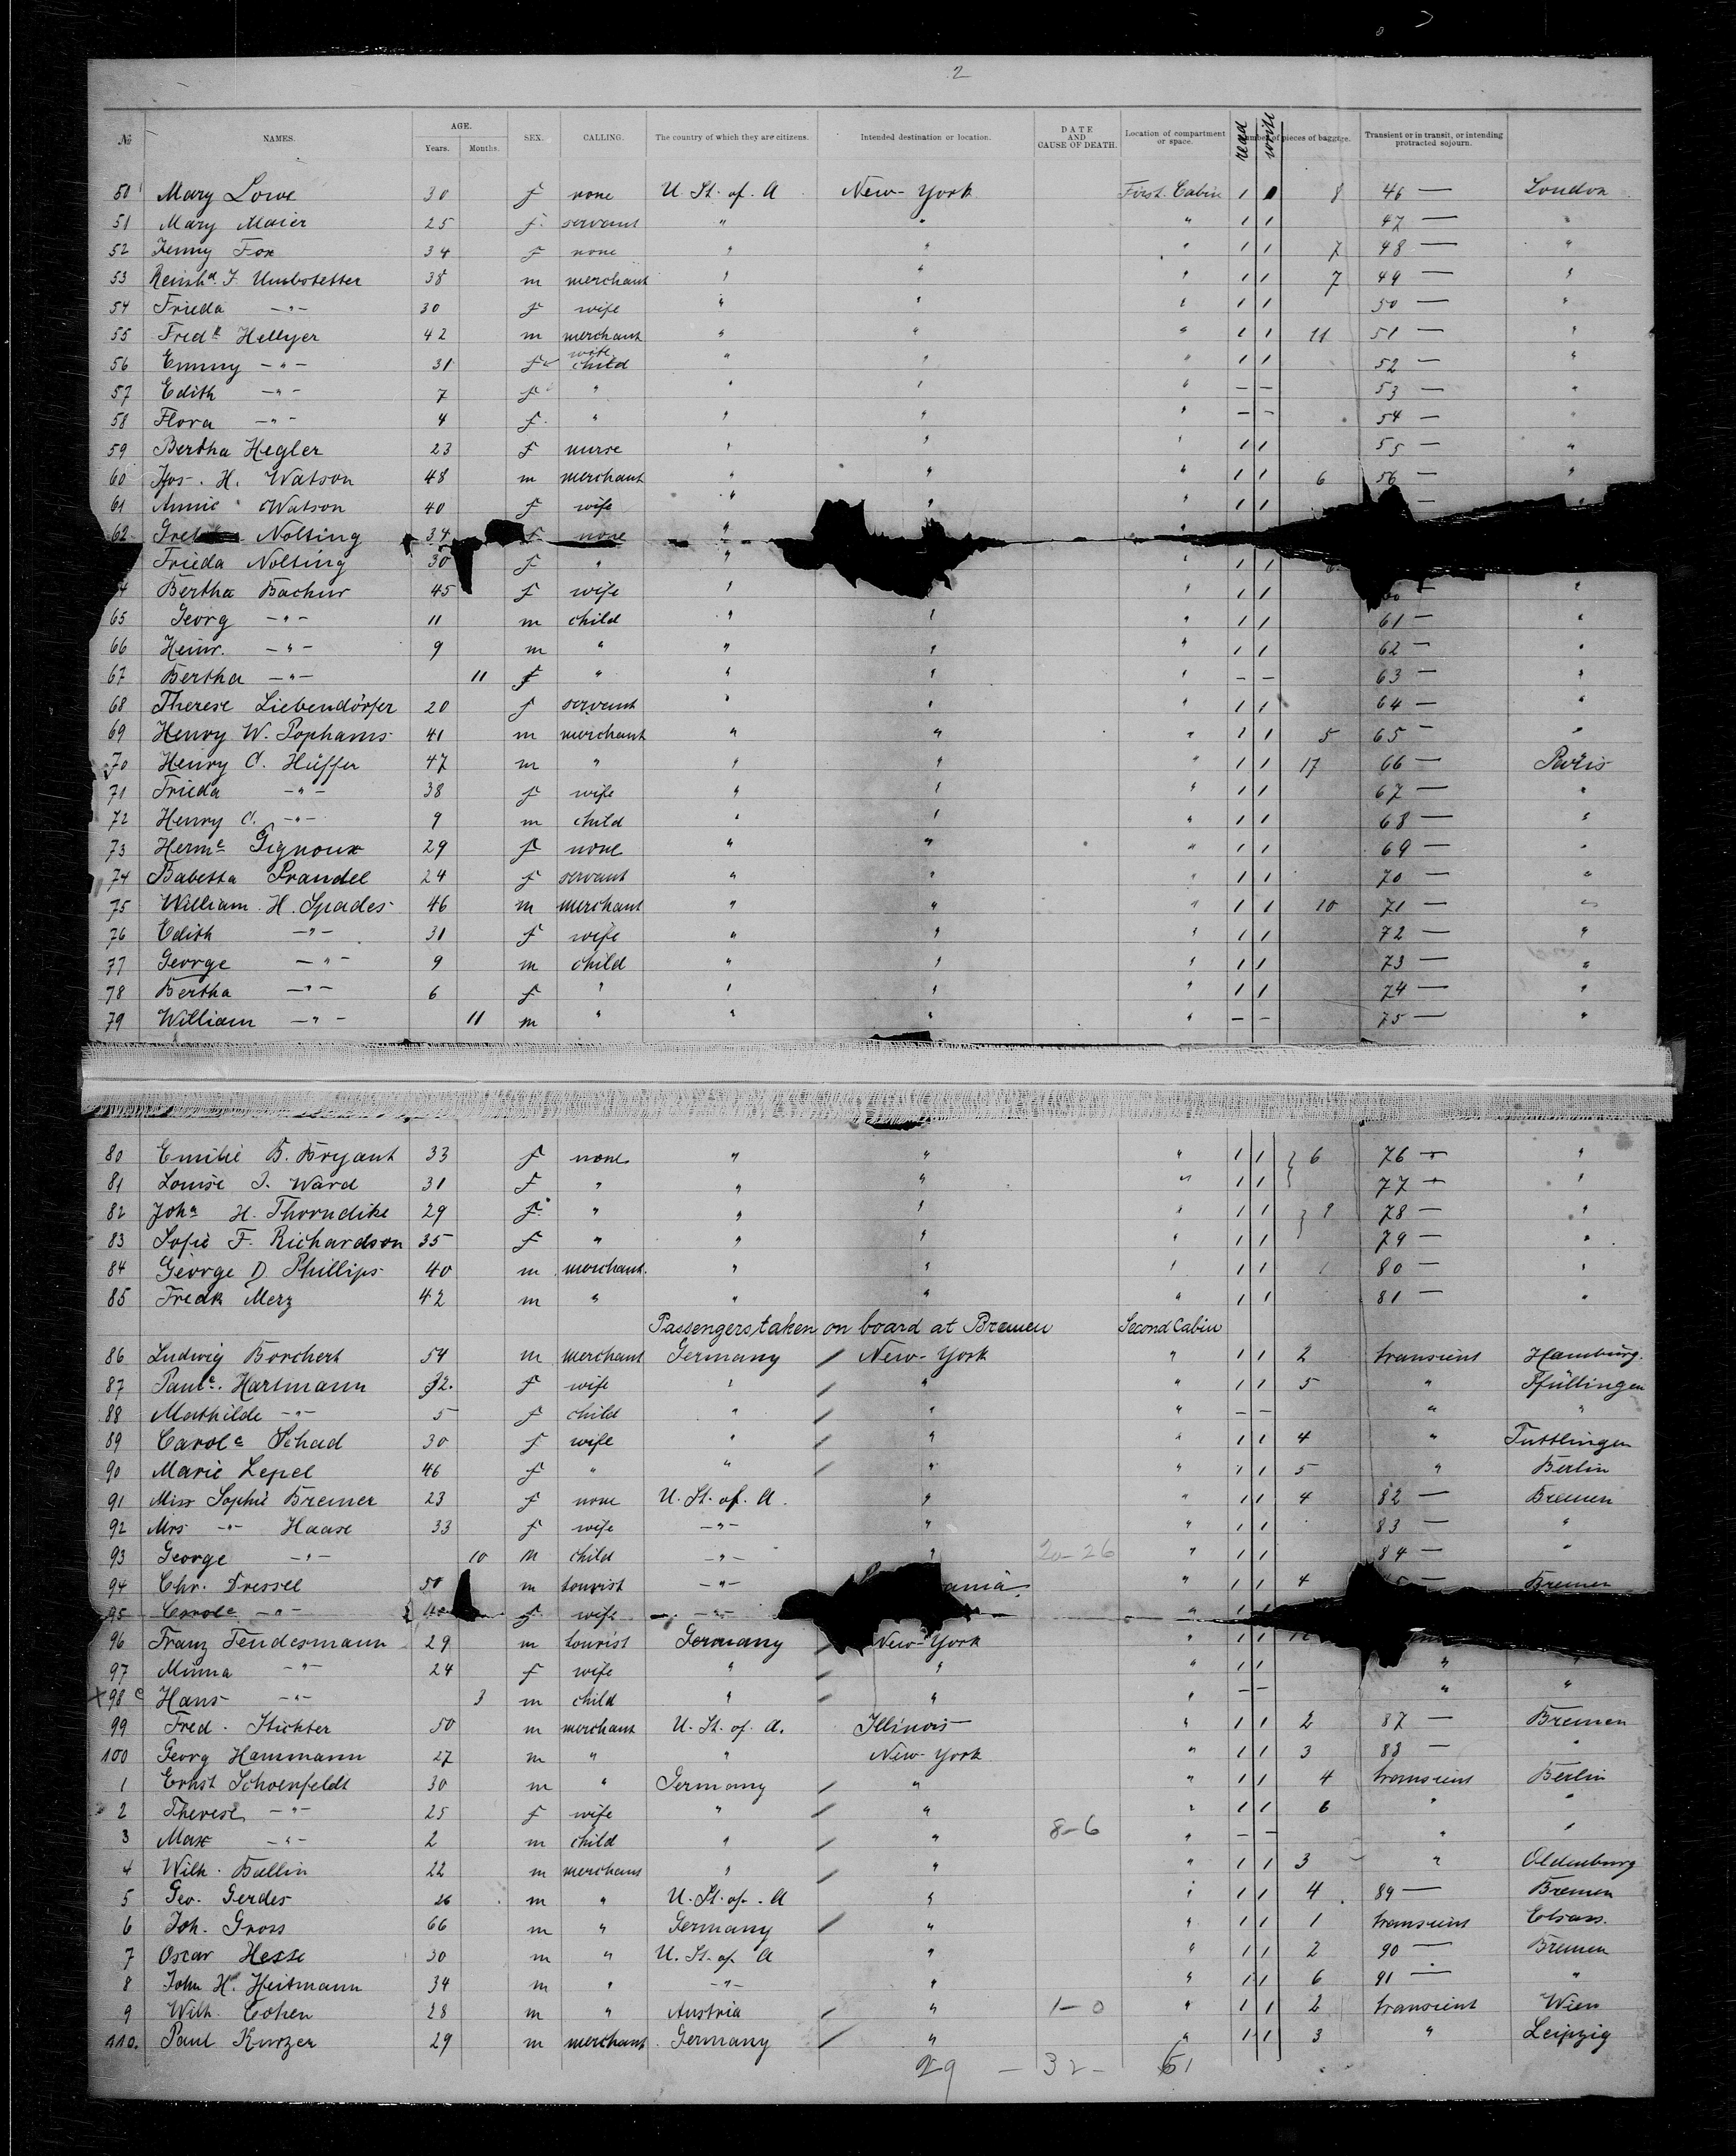 2
№ NAMES. AGE. Years. Months. SEX. CALLING. The country of which they are citizens. Intended destination or location. DATE AND CAUSE OF DEATH. Location of compartment or space. read write Number of pieces of baggage. Transient or in transit, or intending protracted sojourn.
50 Mary Lowe 30 f none U. St. of. A New-York First. Cabin 1 1 8 46 — London
51 Mary Maier 25 f. servant " " " 1 1 47 — "
52 Jenny Fox 34 f none " " " 1 1 7 48 — "
53 Reinhd. F. Umbstetter 38 m merchant " " " 1 1 7 49 — "
54 Frieda -"- 30 f wife " " " 1 1 50 — "
55 Fredk Hellyer 42 m merchant " " " 1 1 11 51 — "
56 Emmy -"- 31 f wife child " " " 1 1 52 — "
57 Edith -"- 7 f " " " " — — 53 — "
58 Flora -"- 4 f. " " " " — — 54 — "
59 Bertha Hegler 23 f nurse " " " 1 1 55 — "
60 Jos. H. Watson 48 m merchant " " " 1 1 6 56 — "
61 Annie Watson 40 f wife " " " 1 1 — "
62 Nolting 34 f none " "
Frieda Nolting 30 f " " " 1 1
4 Bertha Bachur 45 f wife " " 1 1 60 — "
65 Georg -"- 11 m child " " " 1 1 61 — "
66 Heinr. -"- 9 m " " " " 1 1 62 — "
67 Bertha -"- 11 f " " " " — — 63 — "
68 Therese Liebendörfer 20 f servant " " " 1 1 64 — "
69 Henry W. Pophams 41 m merchant " " " 1 1 5 65 — "
70 Henry C. Hüffer 47 m " " " " 1 1 17 66 — Paris
71 Frieda -"- 38 f wife " " " 1 1 67 — "
72 Henry C. -"- 9 m child " " " 1 1 68 — "
73 Herme Gignoux 29 f none " " " 1 1 69 — "
74 Babetta Prandel 24 f servant " " " 1 1 70 — "
75 William. H. Spades 46 m merchant " " " 1 1 10 71 — "
76 Edith -"- 31 f wife " " " 1 1 72 — "
77 George -"- 9 m child " " " 1 1 73 — "
78 Bertha -"- 6 f " " " " 1 1 74 — "
79 William -"- 11 m " " " " — — 75 — "
80 Emilie B. Bryant 33 f none " " " 1 1 } 6 76 — "
81 Louise J. Ward 31 f " " " " 1 1 77 — "
82 Joha H. Thorndike 29 f " " " " 1 1 } 9 78 — "
83 Sofie F. Richardson 35 f " " " " 1 1 79 — "
84 George D. Phillips 40 m merchant. " " " 1 1 1 80 — "
85 Fredk Merz 42 m " " " " 1 1 81 — "
Passengers taken on board at Bremen Second Cabin
86 Ludwig Borchert 54 m merchant Germany / New-York " 1 1 2 transient Hamburg.
87 Paule. Hartmann 32. f wife " / " " 1 1 5 " Pfüllingen
88 Mathilde -"- 5 f child " / " " — — " "
89 Carole Schad 30 f wife " / " " 1 1 4 " Tuttlingen
90 Marie Lepel 46 f " " / " " 1 1 5 " Berlin
91 Miss Sophie Bremer 23 f none U. St. of. A. " " 1 1 4 82 — Bremen
92 Mrs -"- Haase 33 f wife -"- " " 1 1 83 — "
93 George -"- 10 m child -"- " 20-26 " 1 1 84 — "
94 Chr. Dressel 50 m tourist -"- ania " 1 1 4 — Bremen
95 Carole -"- f wife -"- " 1 1
96 Franz Tendesmann 29 m tourist Germany / New-York " 1 1
97 Minna -"- 24 f wife " / " " 1 1 " "
x98 c Hans -"- 3 m child " / " " — — " "
99 Fred. Stichter 50 m merchant U. St. of. A. Illinois " 1 1 2 87 — Bremen
100 Georg Hammann 27 m " " New-York " 1 1 3 88 — "
1 Ernst Schoenfeldt 30 m " Germany / " " 1 1 4 transient Berlin
2 Therese -"- 25 f wife " / " " 1 1 6 " "
3 Max -"- 2 m child " / " 8-6 " — — " "
4 Wilh. Ballin 22 m merchant " / " " 1 1 3 " Oldenburg
5 Geo. Gerdes 26 m " U. St. of. A " " 1 1 4 89 — Bremen
6 Joh. Gross 66 m " Germany / " " 1 1 1 transient Elsass.
7 Oscar Hesse 30 m " U. St. of A " " 1 1 2 90 — Bremen
8 John H. Heitmann 34 m " -"- " " 1 1 6 91 — "
9 Wilh. Cohen 28 m " Austria / " 1-0 " 1 1 2 transient Wien
110. Paul Kurzer 29 m merchant. Germany / " " 1 1 3 " Leipzig
29 - 32 - 61